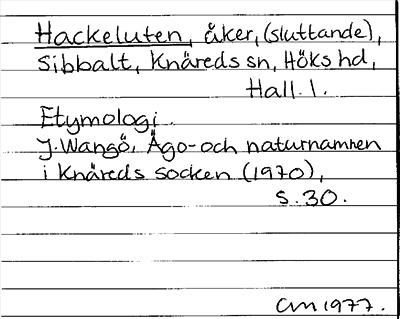 Hackeluten, åker, (sluttande),
Sibbalt, Knäreds sn, Höks hd,
Hall. l.
Etymologi.
J. Wangö, Ägo- och naturnamnen
i Knäreds socken (1970),
s. 30.
CM 1977.